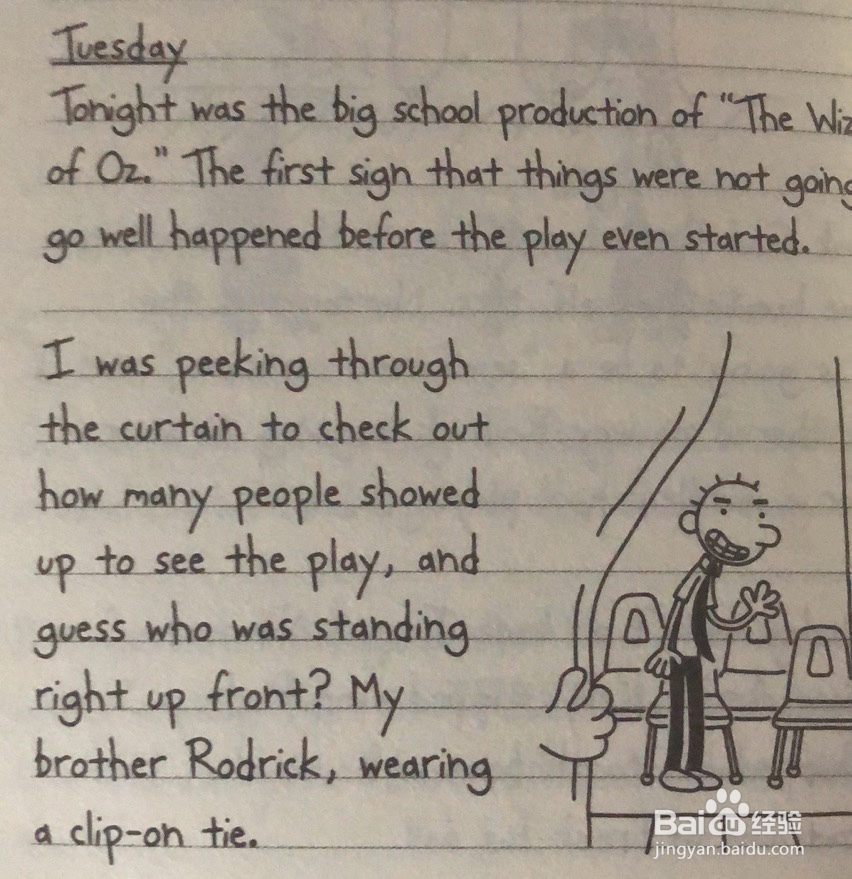 Tuesday
Tonight was the big school production of "The Wiz
of Oz." The first sign that things were not going
go well happened before the play even started.
I was peeking through
the curtain to check out
how many people showed
up to see the play, and
guess who was standing
right up front? My
brother Rodrick, wearing
a clip-on tie.
Baidu 经验
jingyan.baidu.com